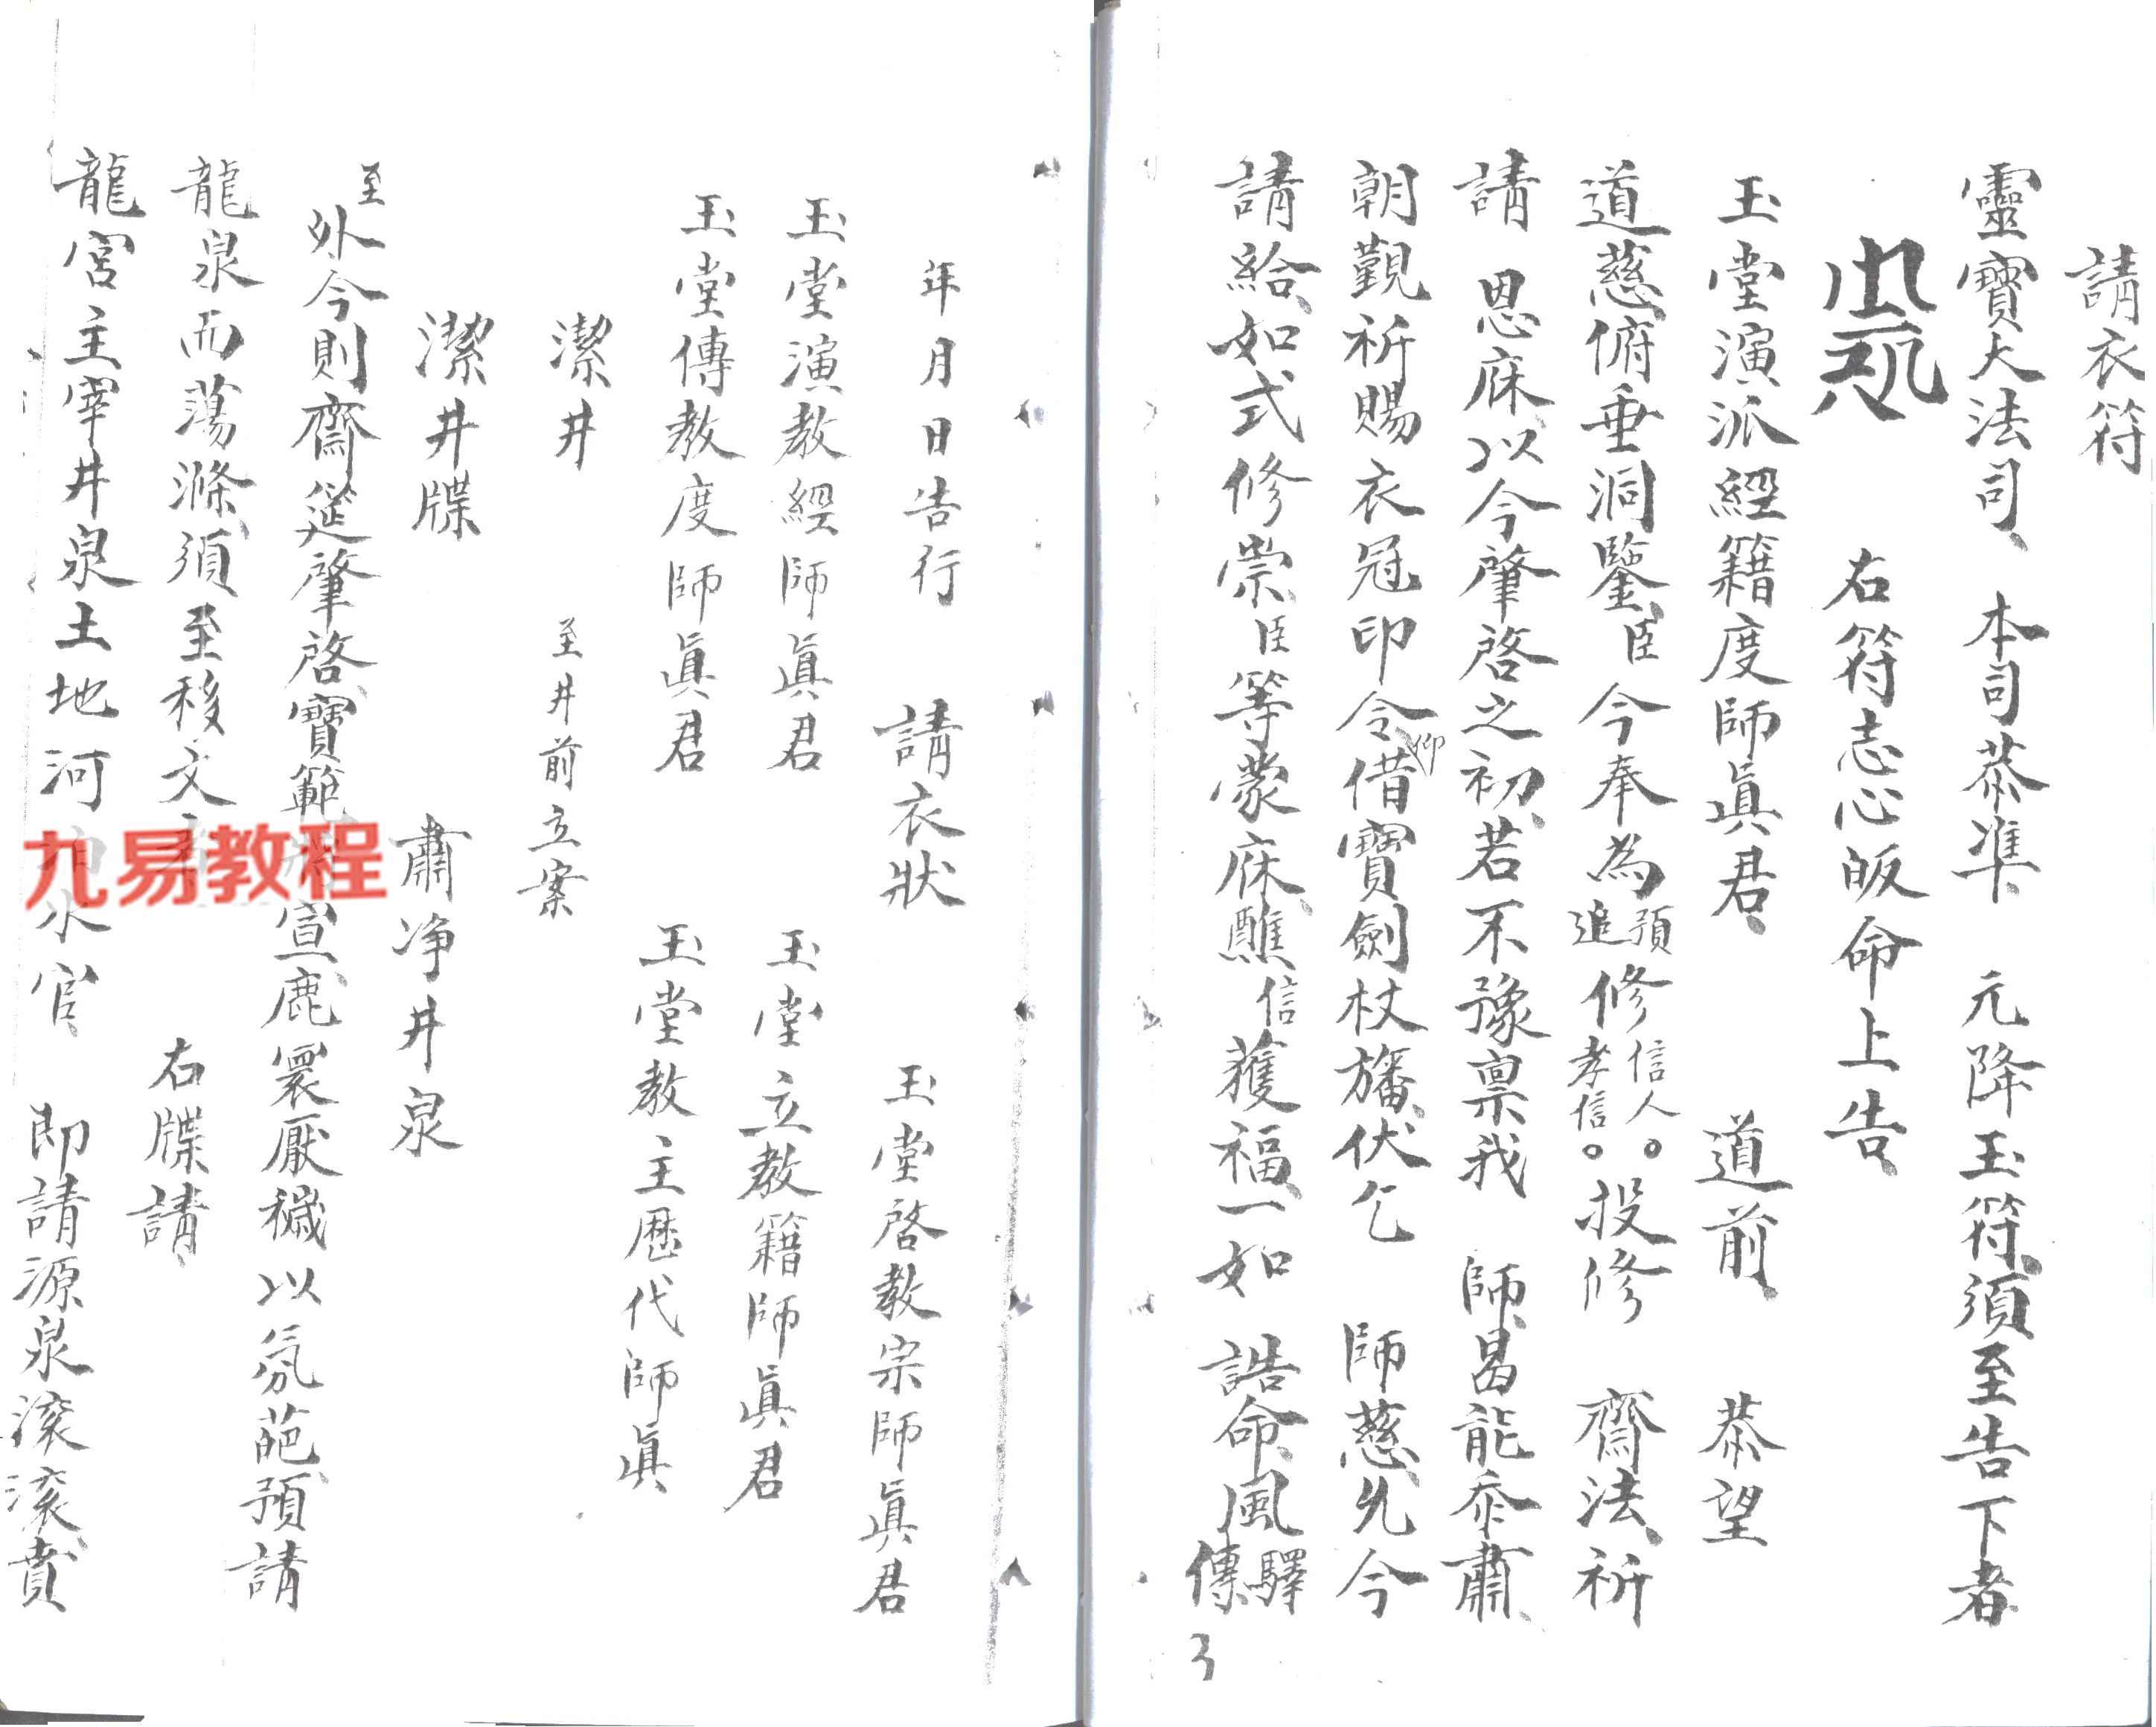 請衣符
靈寶大法司、　本司恭準　元降玉符、須至告下者
右符志心皈命上告、
玉堂演派經籍度師眞君、　道前、　恭望
道慈、俯垂洞鑒、臣今奉為預追修信人孝信。。投修　齋法、祈
請　恩庥、以今肇啓之初、若不豫禀我　師、曷能忝肅、
朝覲、祈賜衣冠印令、仰借寶劍杖旛、伏乞　師慈、允今
請給、如式修崇、臣等蒙庥、醮信獲福、一如　誥命、風驛傳
3
年月日告行　請衣狀　玉堂啓教宗師眞君
玉堂演教經師眞君　玉堂立教籍師眞君
玉堂傳教度師眞君　玉堂教主歷代師眞
潔井　至井前立案
潔井牒　肅净井泉
至外今則齋筵肇啓、寶範宣鹿寰厭穢以氛葩、預請
龍泉而蕩滌、須至移文　右牒請、
龍宮主宰井泉土地河水官、　即請源泉滾滾、賁
九易教程